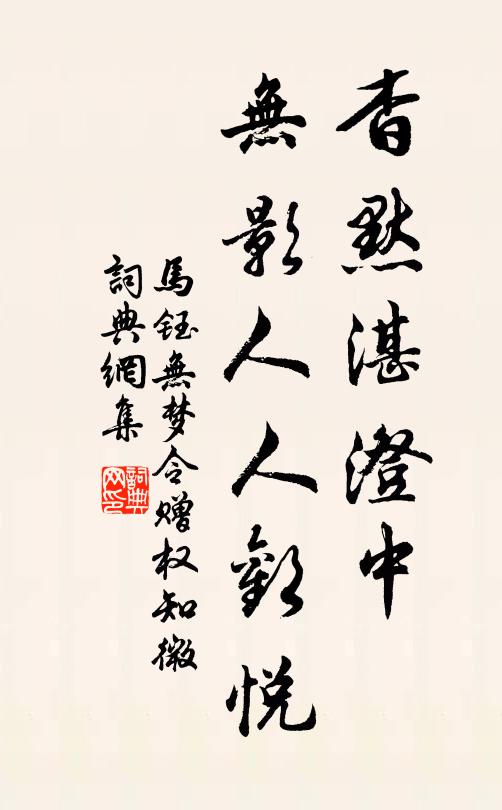 杳黙湛澄中
無影人人歡悦
馬鈺無梦令赠权知微
詞典網集
詞典网印